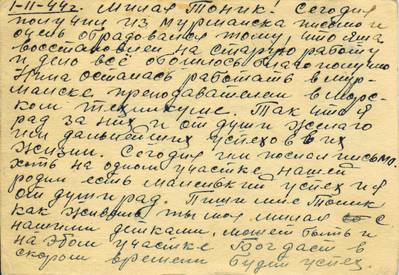 1-III-44г. Милая Тоник! Сегодня
получил из Мурманска письмо и
очень обрадовался тому, что Яша
восстановлен на старую работу
и дело всё обошлось благополучно
Нина осталась работать в Мур-
манске преподавателем в морс-
ком техникуме. Так что я
рад за них и от души желаю
им дальнейших успехов в их
жизни. Сегодня им послал письмо.
хоть на одном участке нашей
родни есть маленький успех и я
от души рад. Пиши мне Тоник
как живёшь ты моя милая с
нашими детками, может быть и
на этом участке Бог даст в
скором времени будет успех.